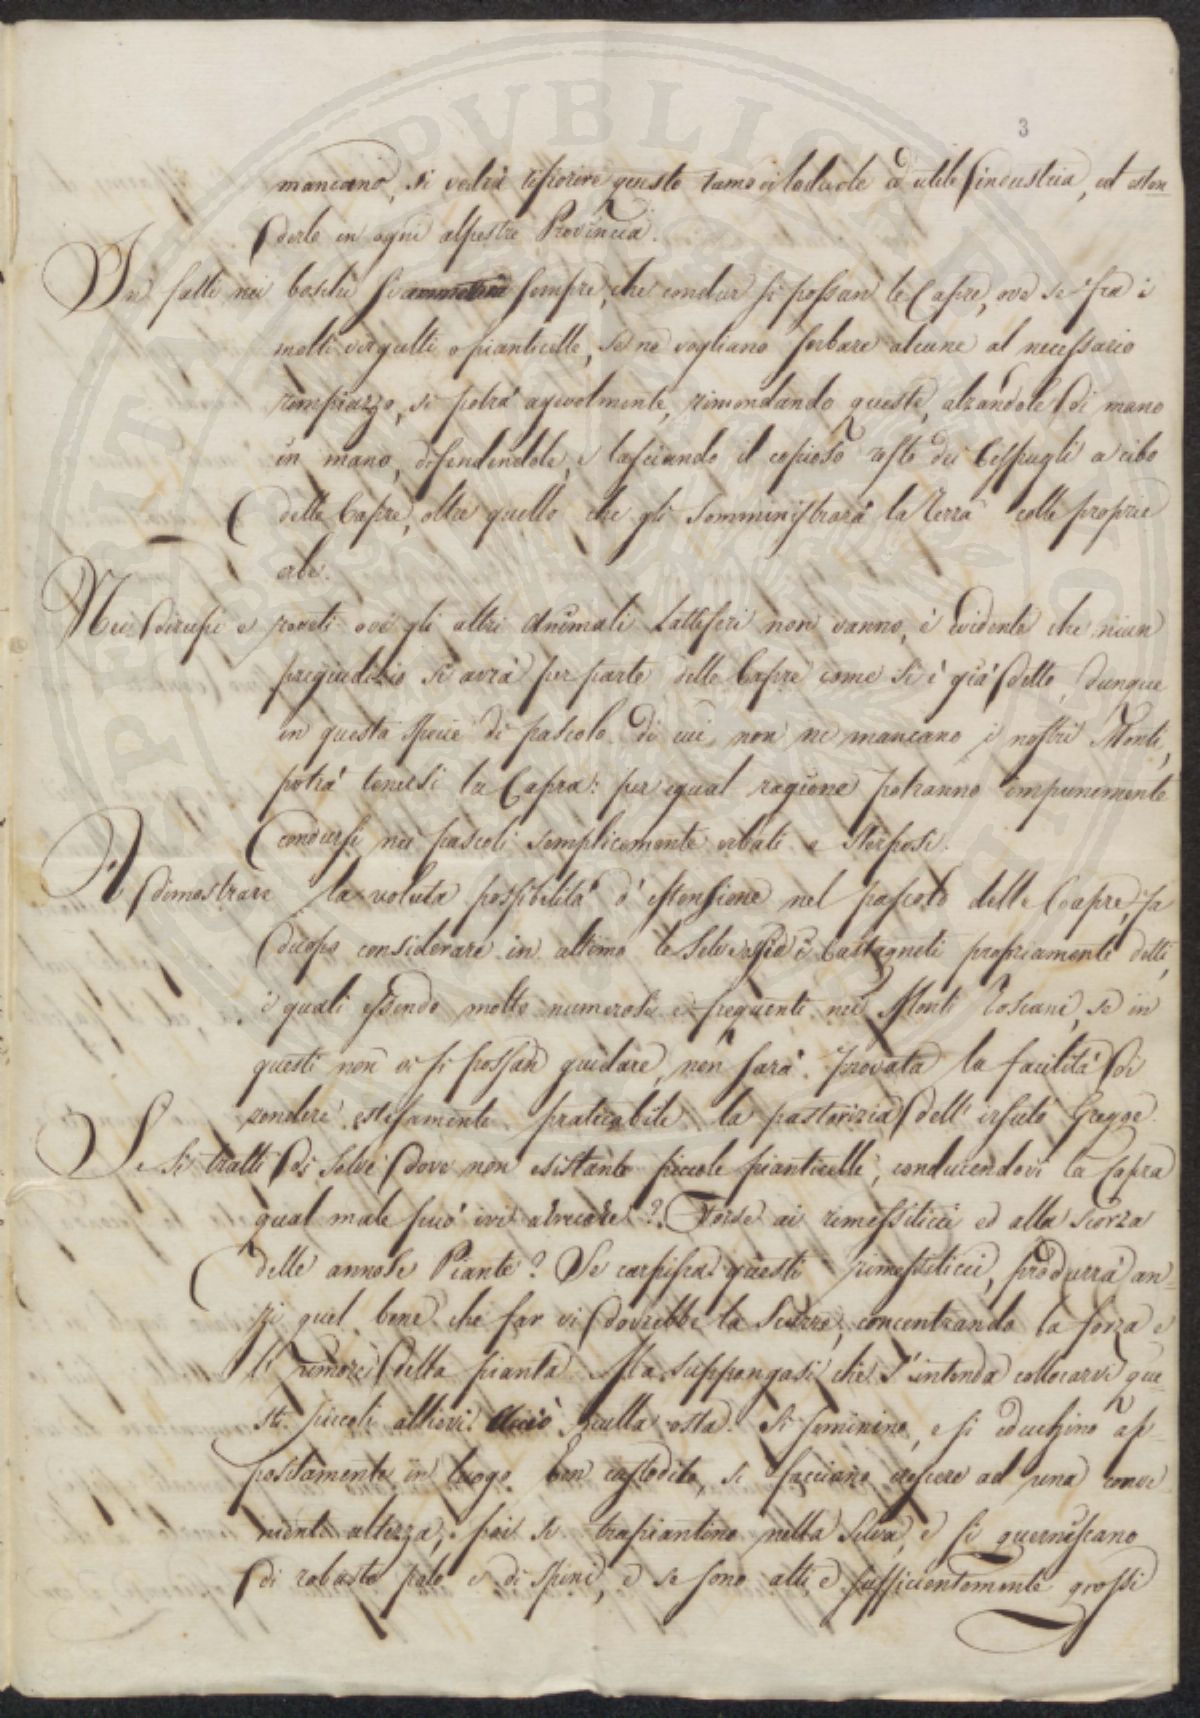 3
mancano, si vedrà rifiorire questo ramo di lodevole ed utile industria, ed esten-
derlo in ogni alpestre Provincia.
In fatti nei boschi sempre, che condur si possan le Capre, ove se fra i
molti virgulti o pianticelle, se ne vogliano serbare alcune al necessario
rimpiazzo, si potrà agevolmente, rimondando queste, alzandole di mano
in mano, difendendole, e lasciando il copioso resto dei Cespugli a cibo
delle Capre, oltre quello che gli somministrarà la Terra colle proprie
erbe.
Nei dirupi e roveti ove gli altri Animali Lattiferi non vanno, è evidente che niun
pregiudizio si avrà per parte delle Capre come si è già detto, dunque
in questa specie di pascolo di cui non ne mancano i nostri Monti,
potrà tenersi la Capra: per egual ragione potranno impunemente
condursi nei pascoli semplicemente erbati e sterposi.
A dimostrare la voluta possibilità d'estensione nel pascolo delle Capre, fa
duopo considerare in ultimo le Selve ossia i Castagneti propriamente detti,
i quali essendo molto numerosi e frequenti nei Monti Toscani, se in
questi non vi si possan guidare, non sarà provata la facilità di
rendere estesamente praticabile la pastorizia dell'irsuto Gregge.
Se si tratti di Selve dove non esistante piccole pianticelle, conducendovi la Capra
qual male può ivi arrecare? Forse ai rimessiticci ed alla scorza
delle annose Piante? Se carpisca questi rimessiticci, produrrà an-
zi quel bene che far vi dovrebbe la Scure, concentrando la forza e
li umori della pianta. Ma suppongasi che s'intenda collocarvi que-
sti piccoli allievi. Ciò nulla osta. Si seminino, e si educhino ap-
positamente in luogo ben custodito, si facciano crescere ad una conve-
niente altezza, poi si trapiantino nella Selva, e si guerniscano
di robusto palo e di spine, e se sono alti e sufficientemente grossi